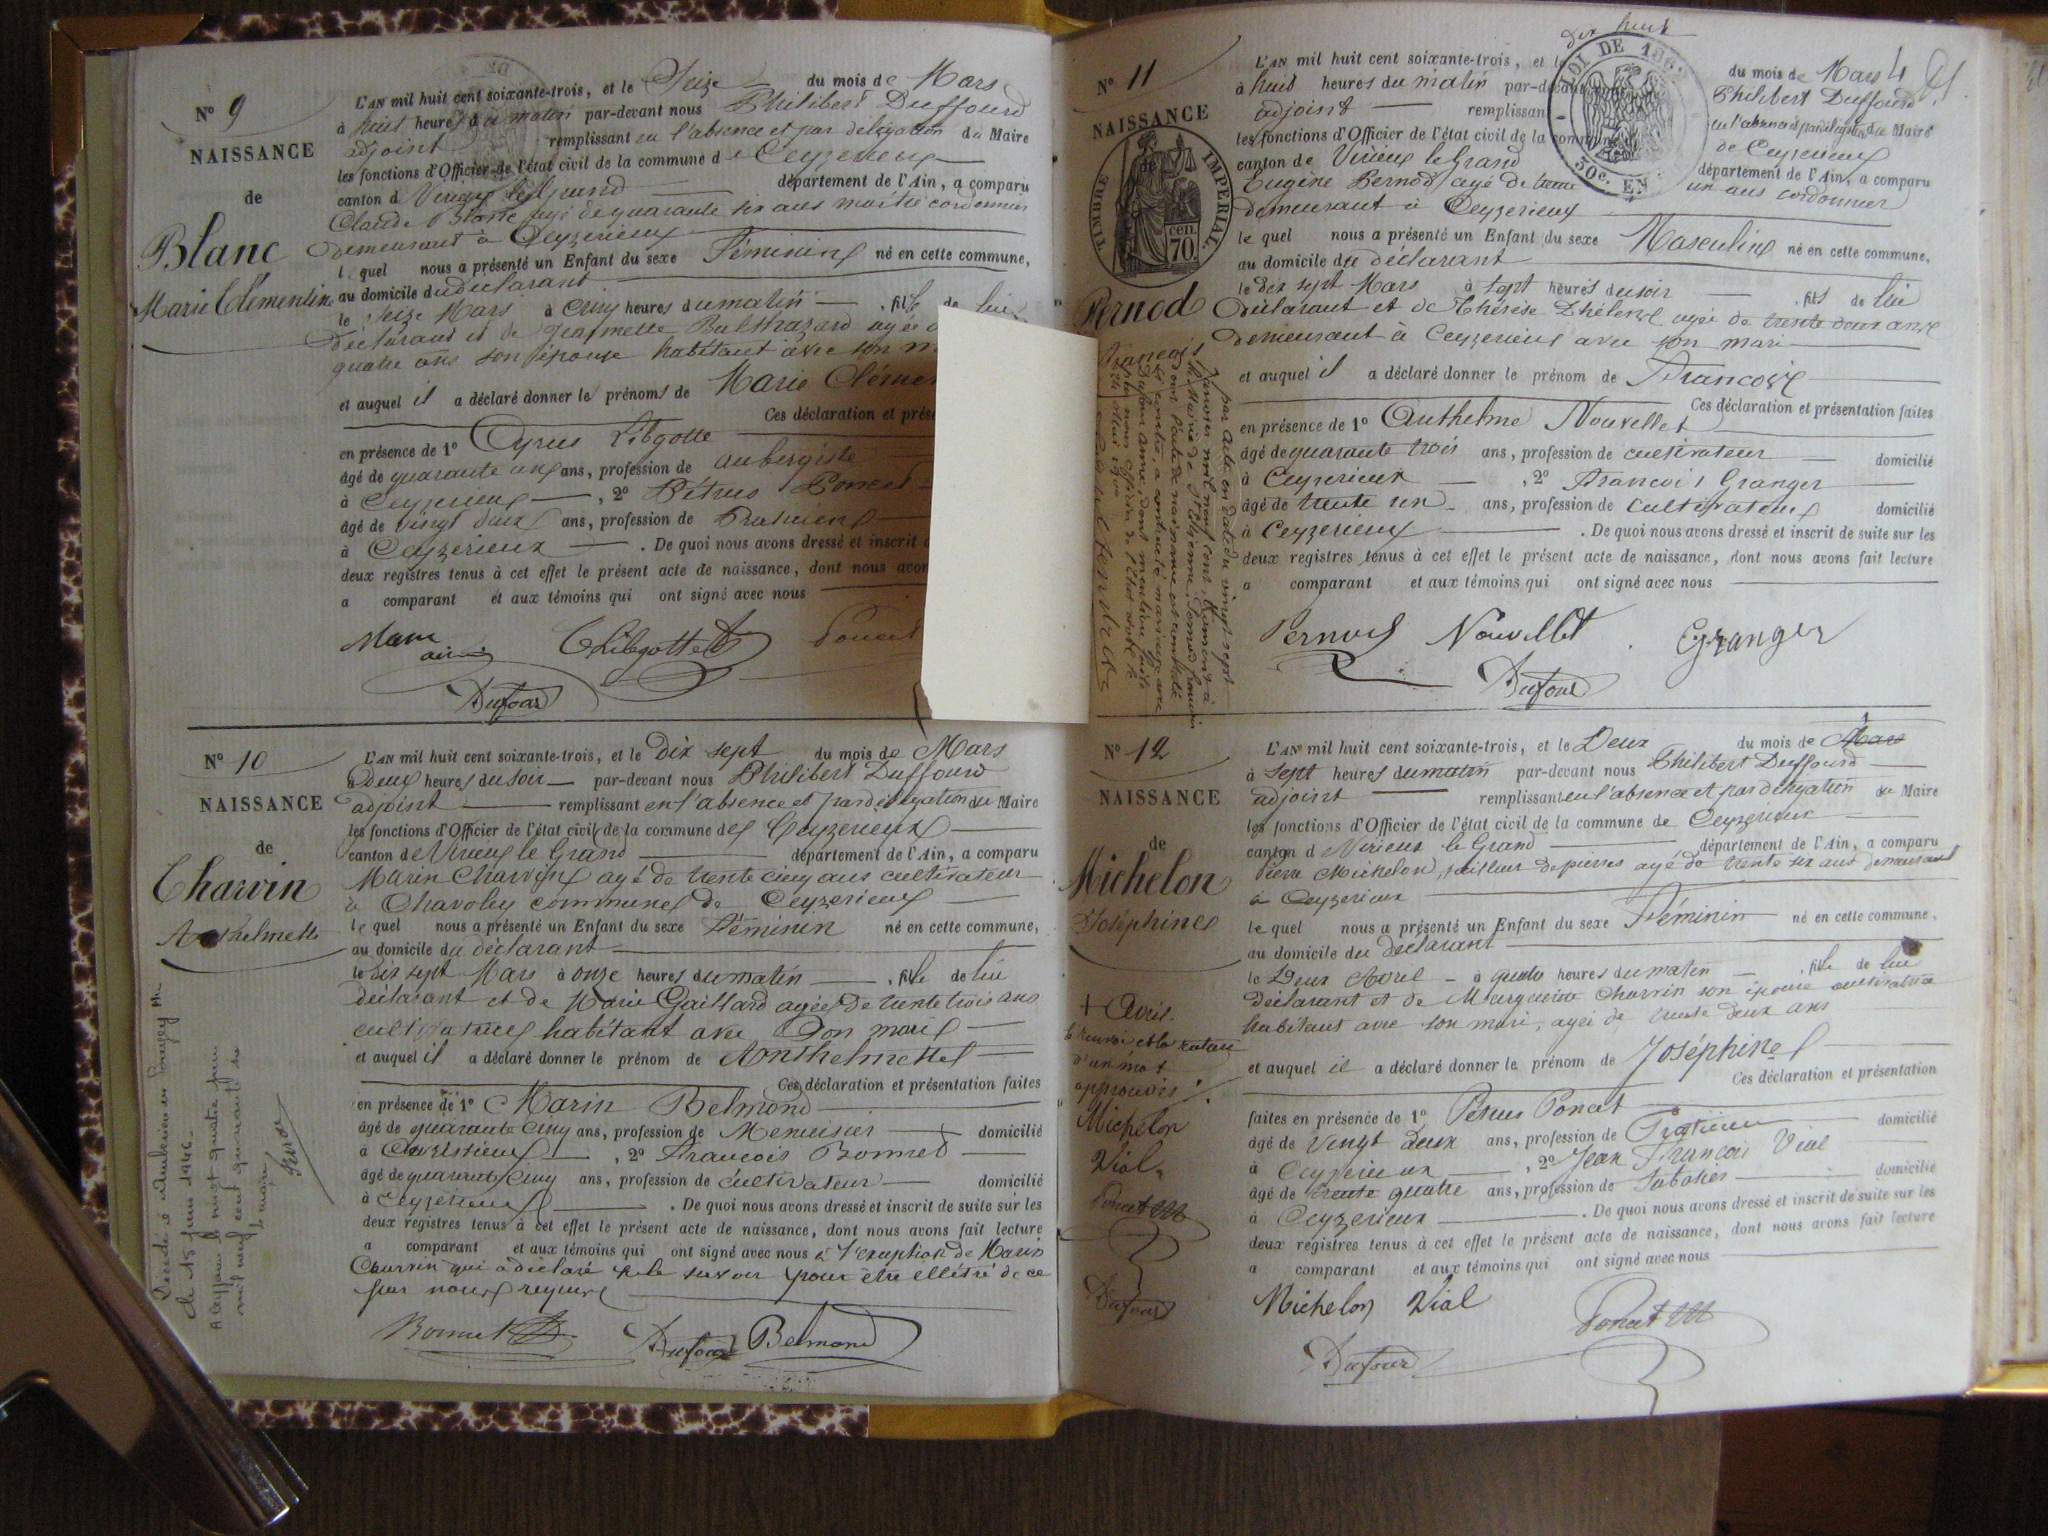 Nº 9
NAISSANCE
de
Blanc
Marie Clémentine
L'AN mil huit cent soixante-trois, et le Seize du mois de Mars
à huit heures du matin par-devant nous Philibert Duffourd
adjoint remplissant en l'absence et par délégation du Maire
les fonctions d'Officier de l'état civil de la commune de Ceyzerieux
canton d Virieux le Grand département de l'Ain, a comparu
Claude Blanc agé de quarante six ans cordonnier
demeurant à Ceyzerieux
l quel nous a présenté un Enfant du sexe Féminin né en cette commune,
au domicile du déclarant
le Seize Mars à cinq heures du matin fille de lui
déclarant et de Jeannette Balthazard agée
quatre ans son épouse habitant avec son
et auquel il a déclaré donner le prénoms de Marie Clémen
Ces déclaration et prés
en présence de 1º Cyrus Libgotte
âgé de quarante ans, profession de aubergiste
à Ceyzerieux, 2º Pétrus Poncet
âgé de vingt deux ans, profession de Praticien
à Ceyzerieux. De quoi nous avons dressé et inscrit
deux registres tenus à cet effet le présent acte de naissance, dont nous avon
a comparant et aux témoins qui ont signé avec nous
Libgotte Poncet
Dufour
Nº 10
NAISSANCE
de
Charvin
Anthelmette
L'AN mil huit cent soixante-trois, et le Dix sept du mois de Mars
à deux heures du soir par-devant nous Philibert Duffourd
adjoint remplissant en l'absence et par délégation du Maire
les fonctions d'Officier de l'état civil de la commune de Ceyzerieux
canton de Virieux le Grand département de l'Ain, a comparu
Marin Charvin agé de trente cinq ans cultivateur
à Chavoley commune de Ceyzerieux
le quel nous a présenté un Enfant du sexe Féminin né en cette commune,
au domicile du déclarant
le dix sept Mars à onze heures du matin fille de lui
déclarant et de Marie Gaillard agée de trente trois ans
cultivatrice habitant avec son mari
et auquel il a déclaré donner le prénom de Anthelmette
Ces déclaration et présentation faites
en présence de 1º Marin Belmond
âgé de quarante cinq ans, profession de Menuisier domicilié
à, 2º François Bonnet
âgé de quarante cinq ans, profession de cultivateur domicilié
à Ceyzerieux. De quoi nous avons dressé et inscrit de suite sur les
deux registres tenus à cet effet le présent acte de naissance, dont nous avons fait lecture
a comparant et aux témoins qui ont signé avec nous à l'exception de Marin
Charvin qui a déclaré ne le savoir pour être illétré de ce
par nous requis
Bonnet Dufour Belmond
Décédée à Ambérieu en Bugey
le 15 juin 1946
mil neuf cent quarante six
Le maire
Nº 11
NAISSANCE
de
TIMBRE IMPERIAL
70 cen.
Pernod
François
dix huit
LOI DE 1862
50c. EN
L'AN mil huit cent soixante-trois, et le du mois de Mars 4
à huit heures du matin par-devant Philibert Duffourd
adjoint remplissant en l'absence et par délégation du Maire
les fonctions d'Officier de l'état civil de la commune de Ceyzerieux
canton de Virieux le Grand département de l'Ain, a comparu
Eugène Pernod agé de trente un ans cordonnier
demeurant à Ceyzerieux
le quel nous a présenté un Enfant du sexe Masculin né en cette commune,
au domicile du déclarant
le dix sept Mars à sept heures du soir fils de lui
déclarant et de Thérèse agée de trente deux ans
demeurant à Ceyzerieux avec son mari
et auquel il a déclaré donner le prénom de François
Ces déclaration et présentation faites
en présence de 1º Anthelme Nouvellet
âgé de quarante trois ans, profession de cultivateur domicilié
à Ceyzerieux, 2º François Granger
âgé de trente un ans, profession de cultivateur domicilié
à Ceyzerieux. De quoi nous avons dressé et inscrit de suite sur les
deux registres tenus à cet effet le présent acte de naissance, dont nous avons fait lecture
a comparant et aux témoins qui ont signé avec nous
Pernod Nouvellet Granger
Dufour
par acte en date du vingt sept
janvier mil neuf cent
la Mairie de St Etienne, Pernod François
dont l'acte de naissance est
ci contre, a contracté mariage avec
Nº 12
NAISSANCE
de
Michelon
Joséphine
L'AN mil huit cent soixante-trois, et le Deux du mois de Mars
à sept heures du matin par-devant nous Philibert Duffourd
adjoint remplissant en l'absence et par délégation du Maire
les fonctions d'Officier de l'état civil de la commune de Ceyzerieux
canton d Virieux le Grand département de l'Ain, a comparu
Pierre Michelon, tailleur de pierres agé de trente six ans demeurant
à Ceyzerieux
le quel nous a présenté un Enfant du sexe Féminin né en cette commune,
au domicile du déclarant
le Deux Avril à quatre heures du matin fille de lui
déclarant et de Marguerite Charvin son épouse cultivatrice
habitant avec son mari, agée de trente deux ans
et auquel il a déclaré donner le prénom de Joséphine
Ces déclaration et présentation
faites en présence de 1º Petrus Poncet
âgé de vingt deux ans, profession de Praticien domicilié
à Ceyzerieux, 2º Jean François Vial
âgé de trente quatre ans, profession de Sabotier domicilié
à Ceyzerieux. De quoi nous avons dressé et inscrit de suite sur les
deux registres tenus à cet effet le présent acte de naissance, dont nous avons fait lecture
a comparant et aux témoins qui ont signé avec nous
Michelon Vial Poncet
Dufour
+ Avril.
le renvoi et la rature
d'un mot
approuvés
Michelon
Vial
Poncet
Dufour